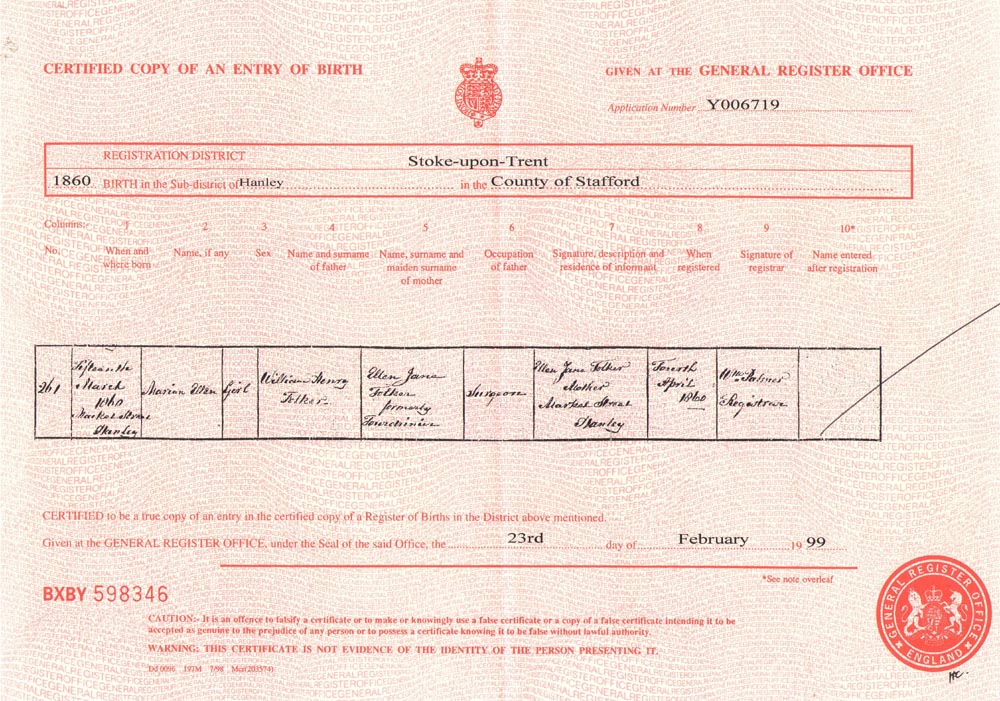 CERTIFIED COPY OF AN ENTRY OF BIRTH
GIVEN AT THE GENERAL REGISTER OFFICE
Application Number Y006719
REGISTRATION DISTRICT Stoke-upon-Trent
1860 BIRTH in the Sub-district of Hanley in the County of Stafford
Columns:- 1 2 3 4 5 6 7 8 9 10*
No. When and where born Name, if any Sex Name and surname of father Name, surname and maiden surname of mother Occupation of father Signature, description and residence of informant When registered Signature of registrar Name entered after registration
261
Fifteenth
March
1860
Market Street
Hanley
Marian Ellen
Girl
William Henry
Folker
Ellen Jane
Folker
formerly
Surgeon
Ellen Jane Folker
Mother
Market Street
Hanley
Fourth
April
1860
Wm Palmer
Registrar
CERTIFIED to be a true copy of an entry in the certified copy of a Register of Births in the District above mentioned.
Given at the GENERAL REGISTER OFFICE, under the Seal of the said Office, the 23rd day of February 19 99
*See note overleaf
BXBY 598346
CAUTION:- It is an offence to falsify a certificate or to make or knowingly use a false certificate or a copy of a false certificate intending it to be
accepted as genuine to the prejudice of any person or to possess a certificate knowing it to be false without lawful authority.
WARNING: THIS CERTIFICATE IS NOT EVIDENCE OF THE IDENTITY OF THE PERSON PRESENTING IT.
GENERAL REGISTER OFFICE
ENGLAND